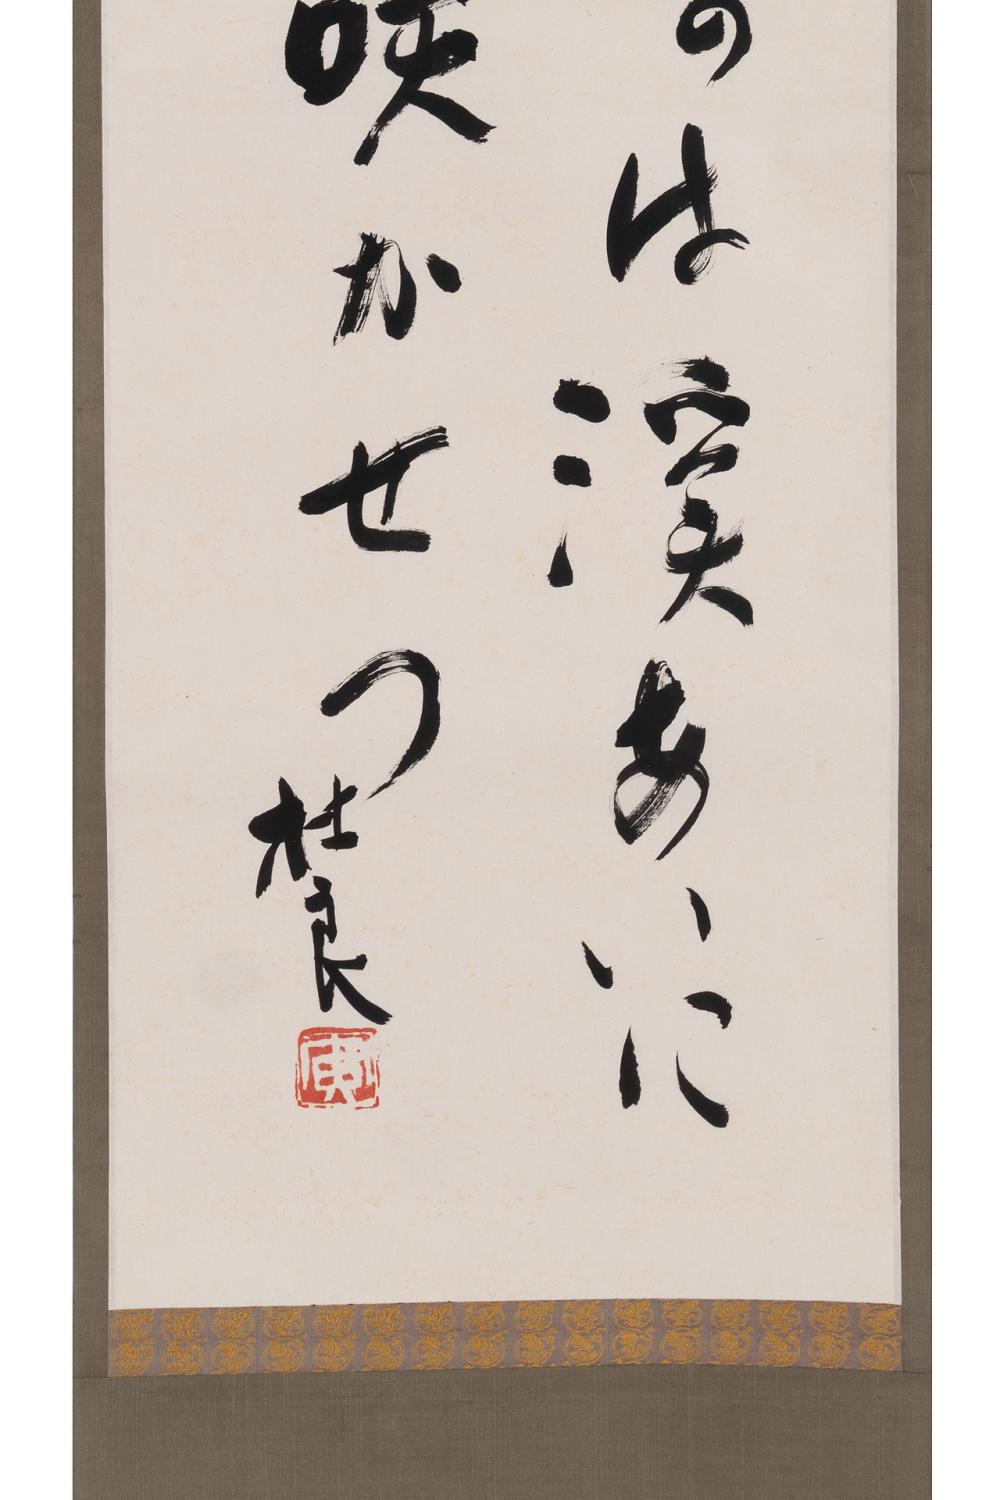 のは渓あいに
咲かせつ
桂良